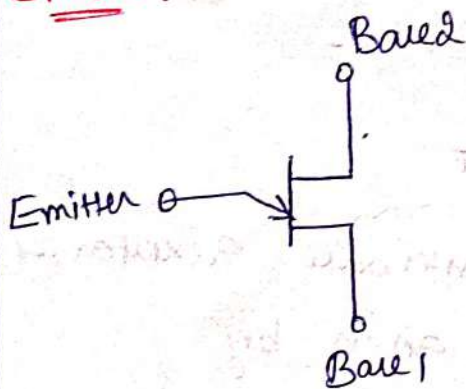 Base2
Emitter
Base1